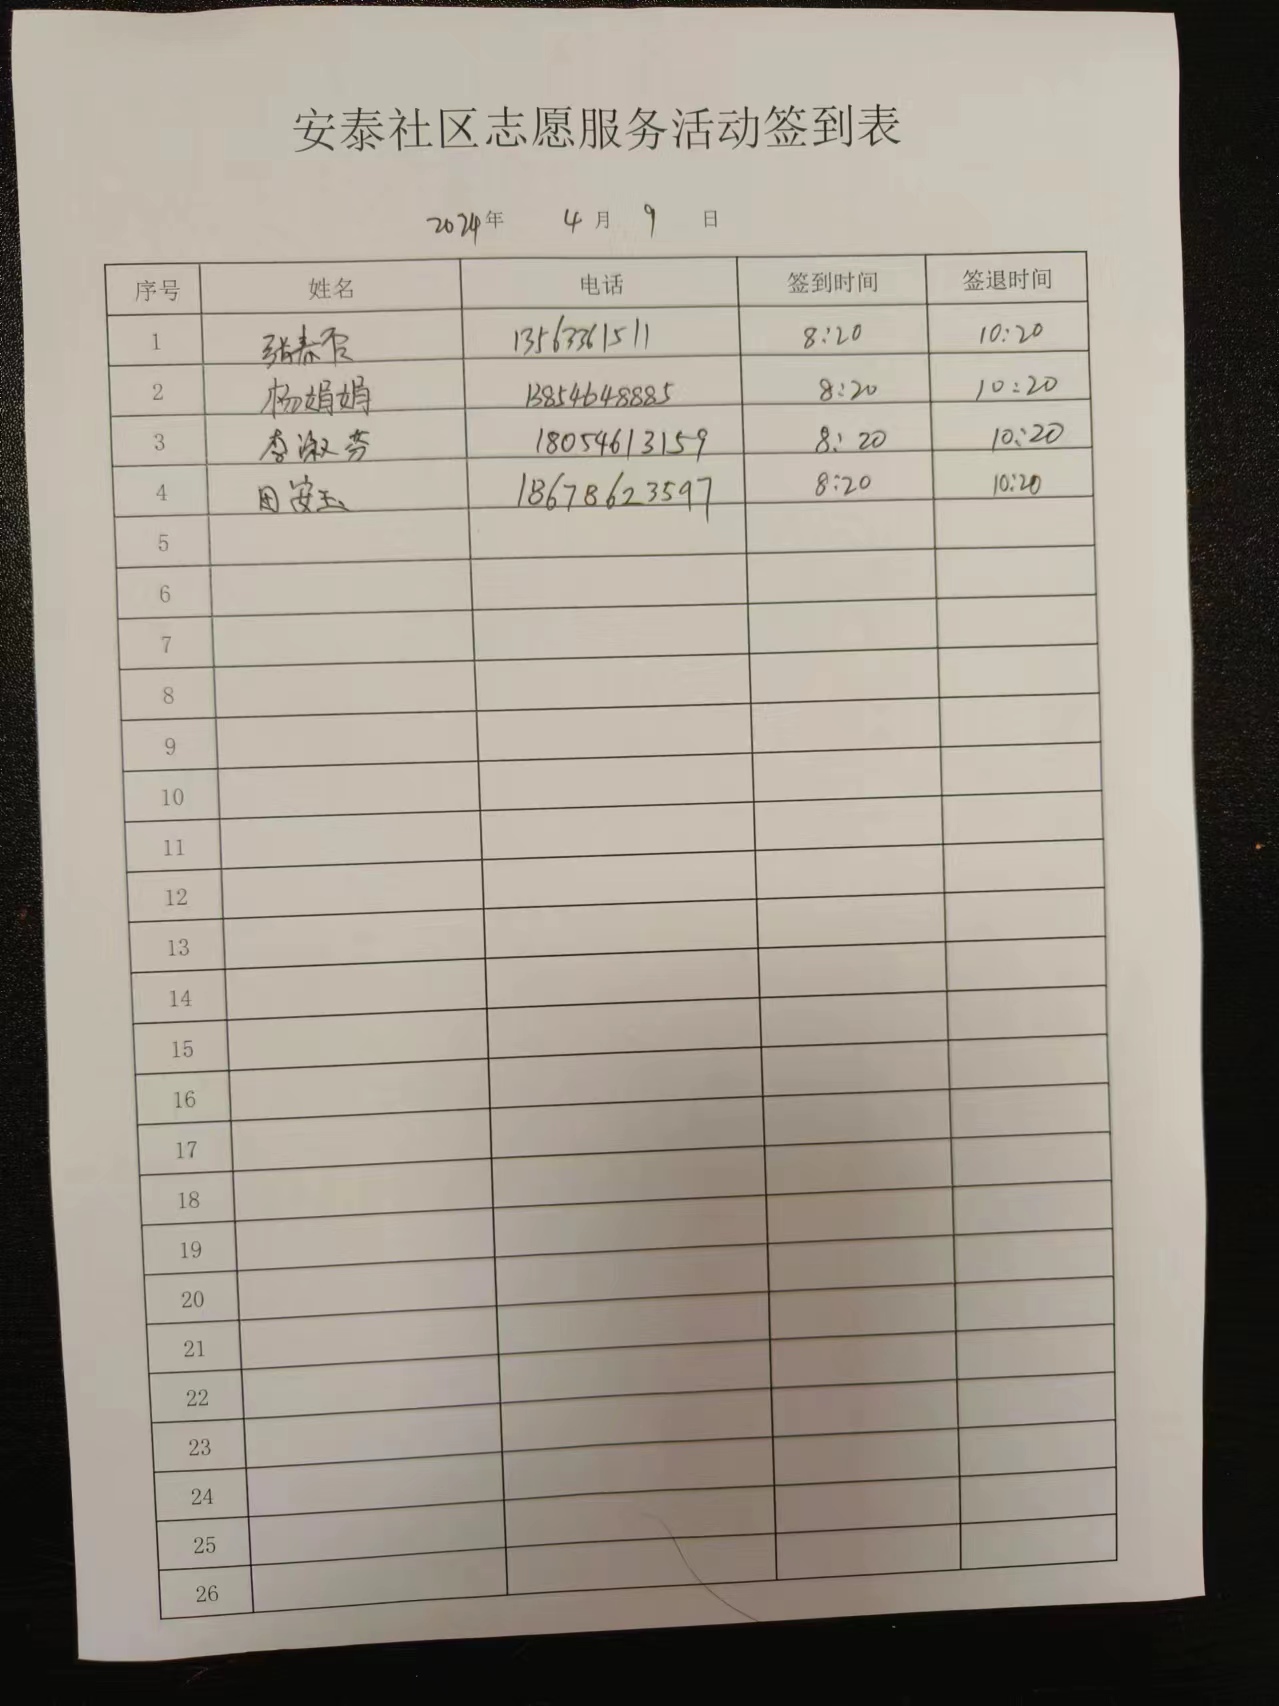 安泰社区志愿服务活动签到表
2024年 4月 9 日
序号 姓名 电话 签到时间 签退时间
1 张春 13563361511 8:20 10:20
2 杨娟娟 13854648885 8:20 10:20
3 李淑芬 18054613159 8:20 10:20
4 田安玉 18678623597 8:20 10:20
5
6
7
8
9
10
11
12
13
14
15
16
17
18
19
20
21
22
23
24
25
26